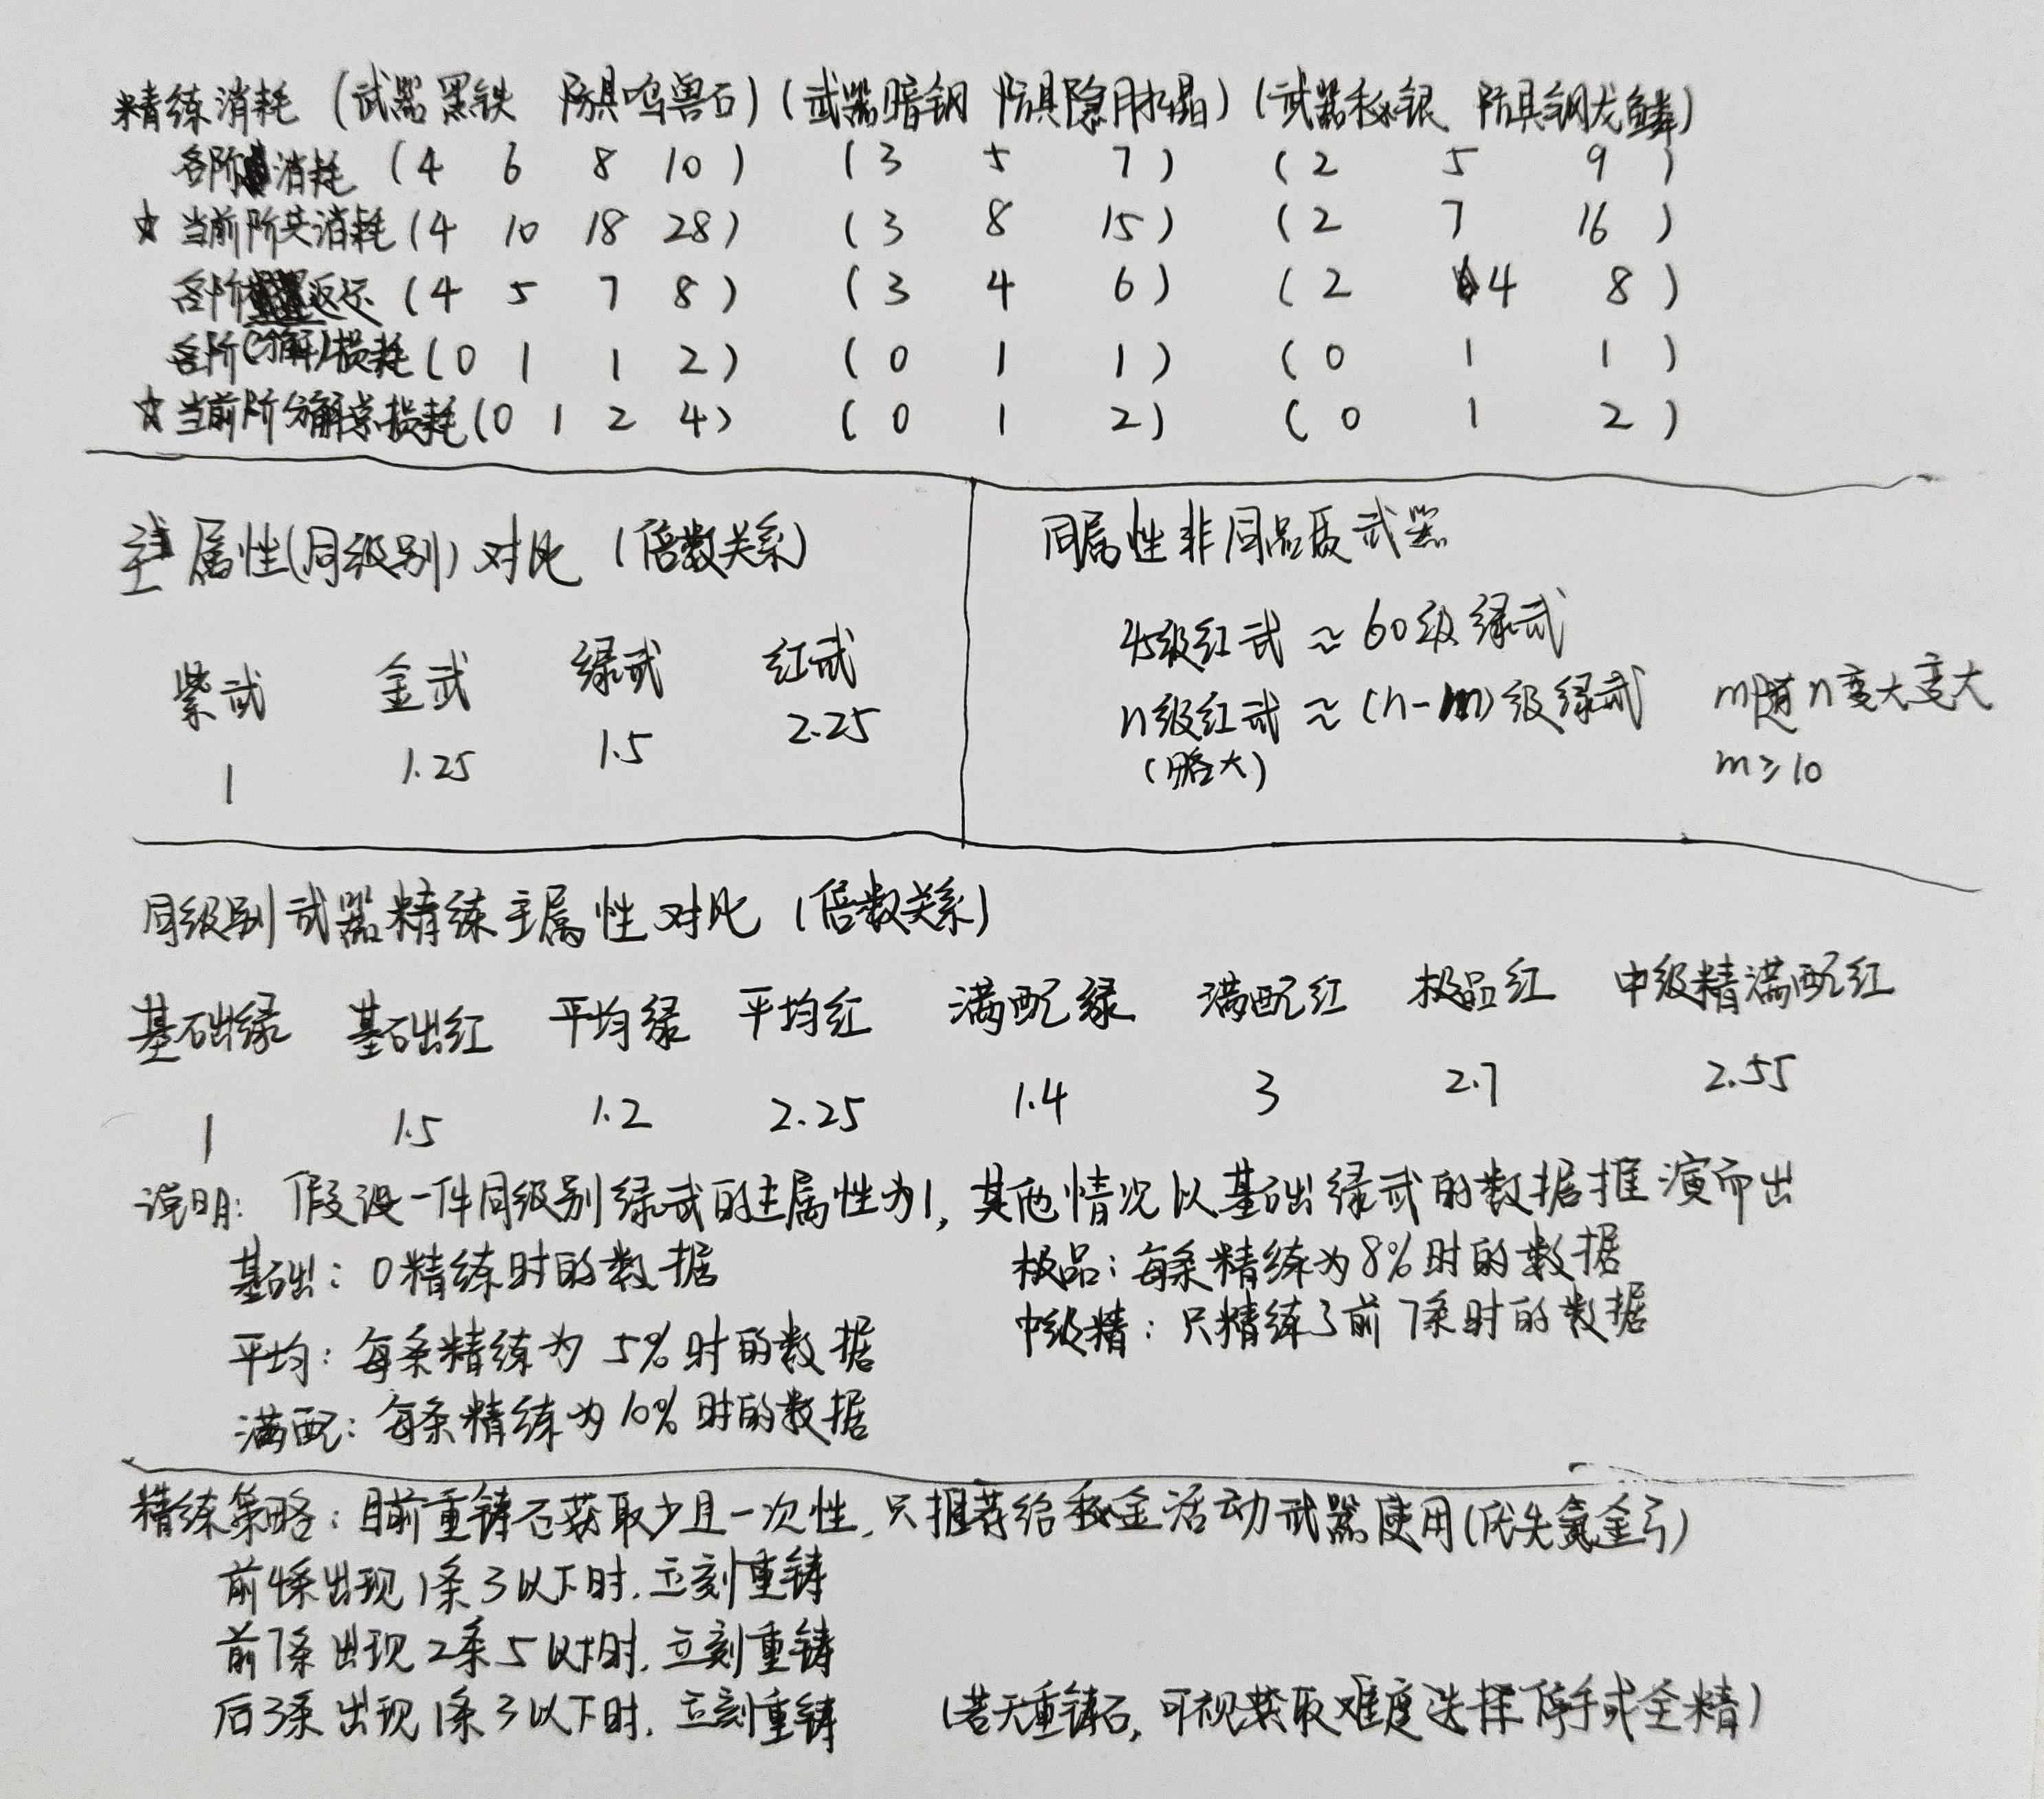 精练消耗 (武器黑铁 防具鸣兽石) (武器暗钢 防具隐月水晶) (武器秘银 防具钢龙鳞)
各阶消耗 (4 6 8 10) (3 5 7) (2 5 9)
☆当前阶共消耗 (4 10 18 28) (3 8 15) (2 7 16)
各阶返还 (4 5 7 8) (3 4 6) (2 4 8)
各阶(分解)损耗 (0 1 1 2) (0 1 1) (0 1 1)
☆当前阶分解总损耗 (0 1 2 4) (0 1 2) (0 1 2)
主属性(同级别)对比 (倍数关系)
紫武 金武 绿武 红武
1 1.25 1.5 2.25
同属性非同品质武器
45级红武 ≈ 60级绿武
n级红武 ≈ (n-m)级绿武 m随n变大变大
(略大) m≥10
同级别武器精练主属性对比 (倍数关系)
基础绿 基础红 平均绿 平均红 满配绿 满配红 极品红 中级精满配红
1 1.5 1.2 2.25 1.4 3 2.7 2.55
说明: 假设一件同级别绿武的主属性为1, 其他情况以基础绿武的数据推演而出
基础: 0精练时的数据 极品: 每条精练为8%时的数据
平均: 每条精练为5%时的数据 中级精: 只精练了前7条时的数据
满配: 每条精练为10%时的数据
精练策略: 目前重铸石获取少且一次性, 只推荐给氪金活动武器使用(优先氪金弓)
前4条出现1条3以下时, 立刻重铸
前7条出现2条5以下时, 立刻重铸
后3条出现1条3以下时, 立刻重铸 (若无重铸石, 可视获取难度选择停手或全精)